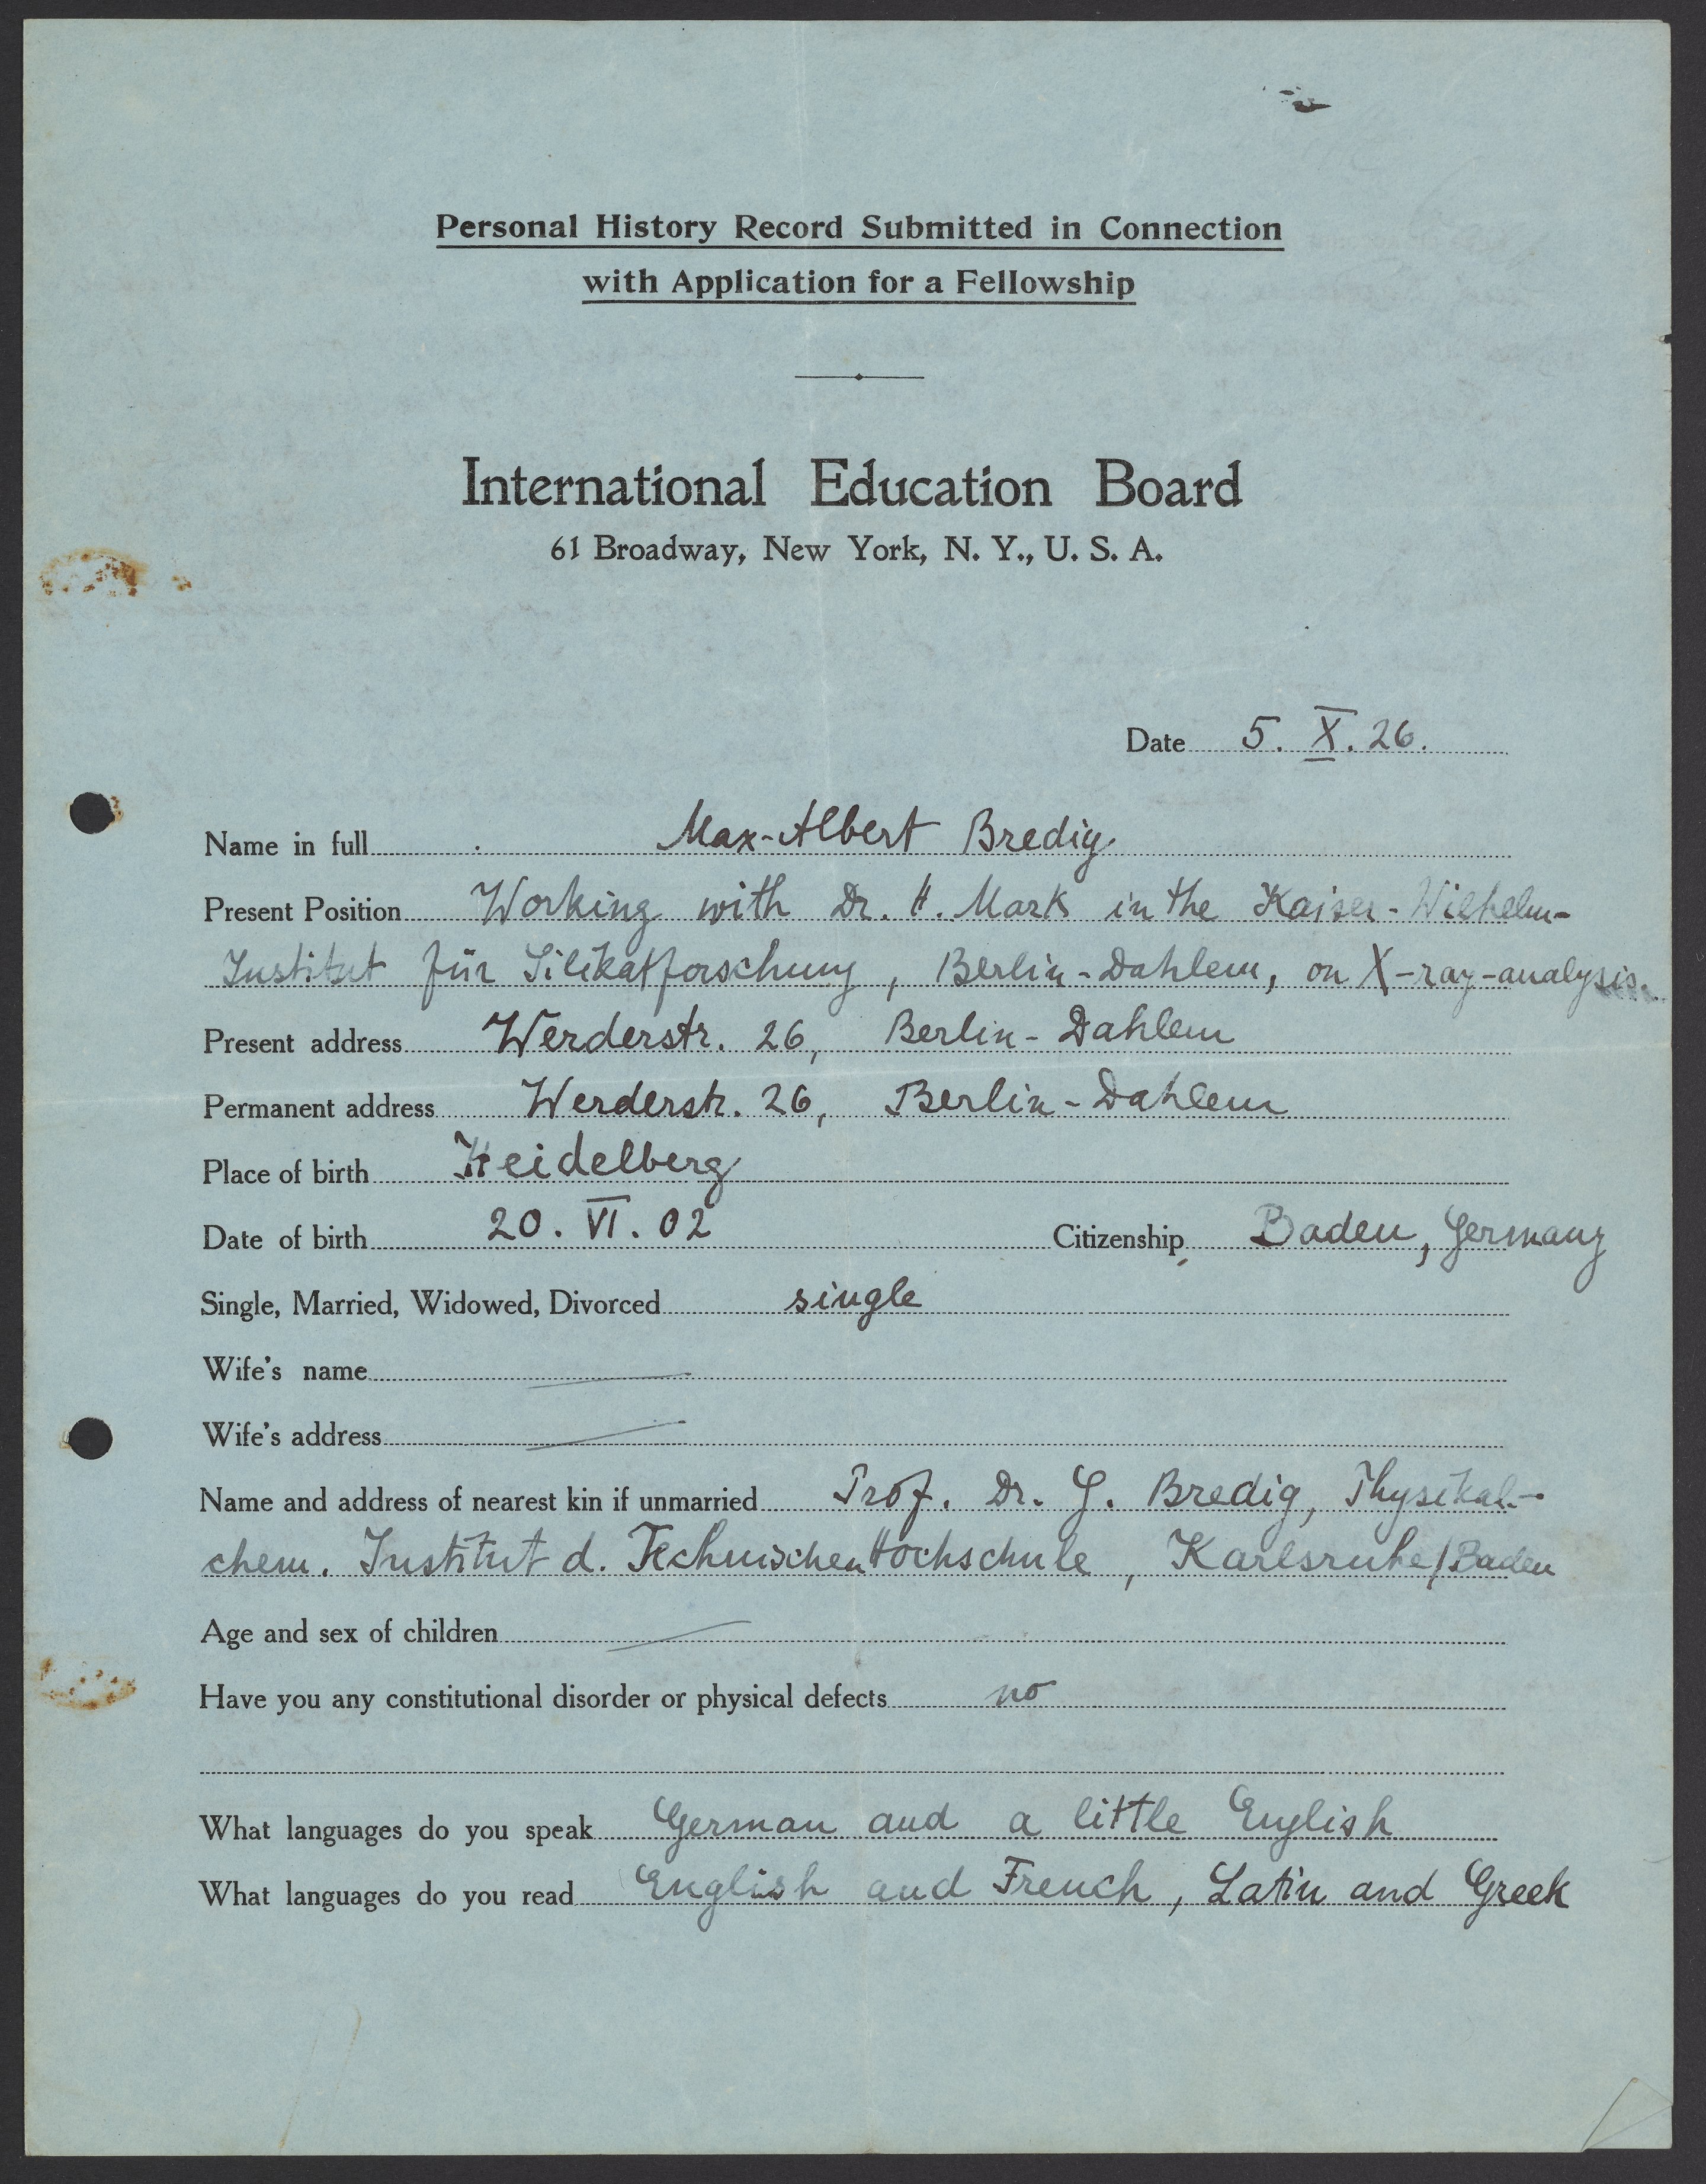 Personal History Record Submitted in Connection
with Application for a Fellowship
International Education Board
61 Broadway, New York, N. Y., U. S. A.
Date 5. X. 26.
Name in full Max-Albert Bredig
Present Position Working with Dr. H. Mark in the Kaiser-Wilhelm-
Institut für Silikatforschung, Berlin-Dahlem, on X-ray-analysis.
Present address Werderstr. 26, Berlin-Dahlem
Permanent address Werderstr. 26, Berlin-Dahlem
Place of birth Heidelberg
Date of birth 20. VI. 02 Citizenship Baden, Germany
Single, Married, Widowed, Divorced single
Wife's name
Wife's address
Name and address of nearest kin if unmarried Prof. Dr. G. Bredig, Physikal.-
chem. Institut d. Technischen Hochschule, Karlsruhe/Baden
Age and sex of children
Have you any constitutional disorder or physical defects no
What languages do you speak German and a little English
What languages do you read English and French, Latin and Greek